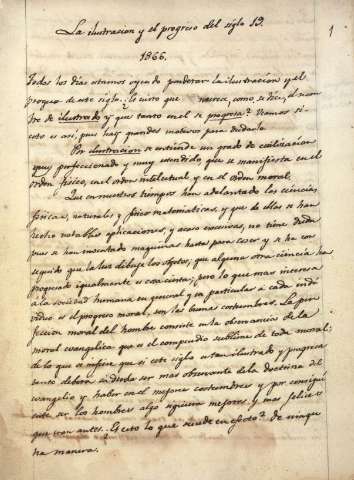 La ilustracion y el progreso del siglo 19.
1
1866.
Todos los dias estamos oyendo ponderar la ilustracion y el
progreso de este siglo. ¿Es cierto que merece, como se dice, el nom-
bre de ilustrado y que tanto en el se progresa? Veamos si
esto es asi, pues hay grandes motivos para dudarlo.
Por ilustracion se entiende un grado de civilizacion
muy perfeccionado y muy estendido que se manifiesta en el
orden fisico, en el orden intelectual y en el orden moral.
Que en nuestros tiempos han adelantado las ciencias
fisicas, naturales y fisico matematicas, y que de ellas se han
hecho notables aplicaciones, y acaso excesivas, no tiene duda
pues se han inventado maquinas hasta para coser y se ha con
seguido que la luz dibuje los objetos; que alguna otra ciencia ha
progresado igualmente es cosa cierta; pero lo que mas interesa
á la sociedad humana en general y en particular á cada indi
viduo es el progreso moral, son las buenas costumbres. La per
feccion moral del hombre consiste en la observancia de la
moral evangelica que es el compendio sublime de toda moral:
de lo que se infiere que si este siglo es tan ilustrado y progresa
tanto debera sin duda ser mas observante de la doctrina del
evangelio y haber en el mejores costumbres y por consigui
ente ser los hombres algo siquiera mejores y mas felices
que eran antes. ¿Es esto lo que sucede en efecto? de ningu
na manera.